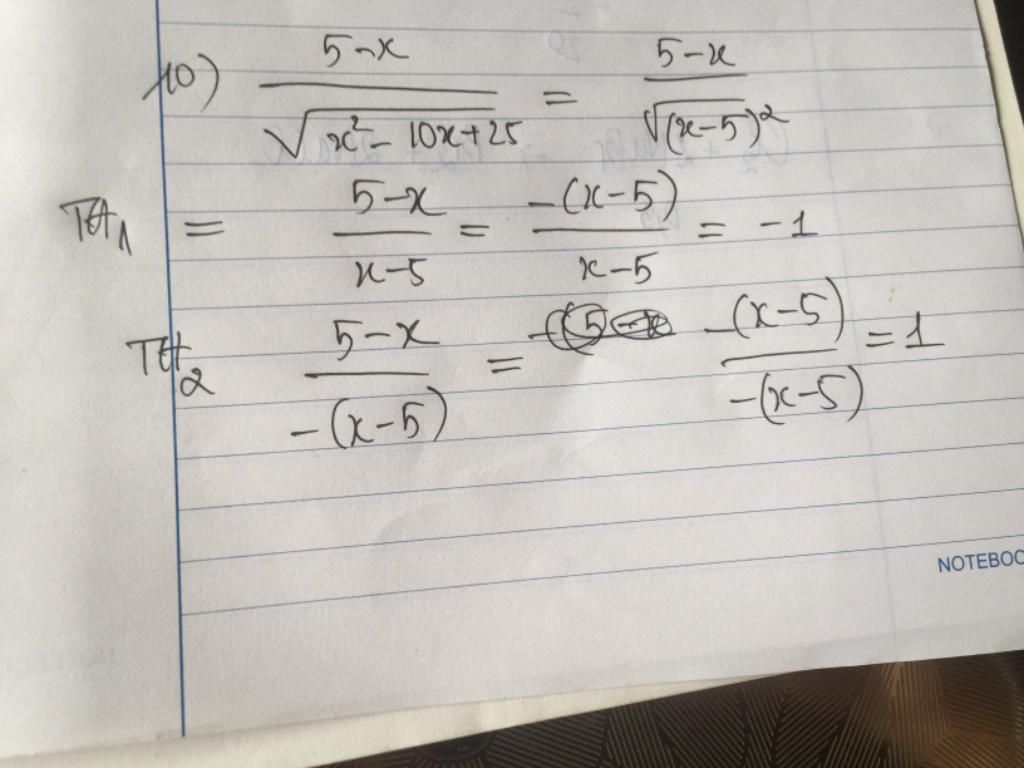 10) (5-x)/√(x²-10x+25) = (5-x)/√(x-5)²
TH₁ = (5-x)/(x-5) = -(x-5)/(x-5) = -1
TH₂ (5-x)/-(x-5) = -(x-5)/-(x-5) = 1
NOTEBOO